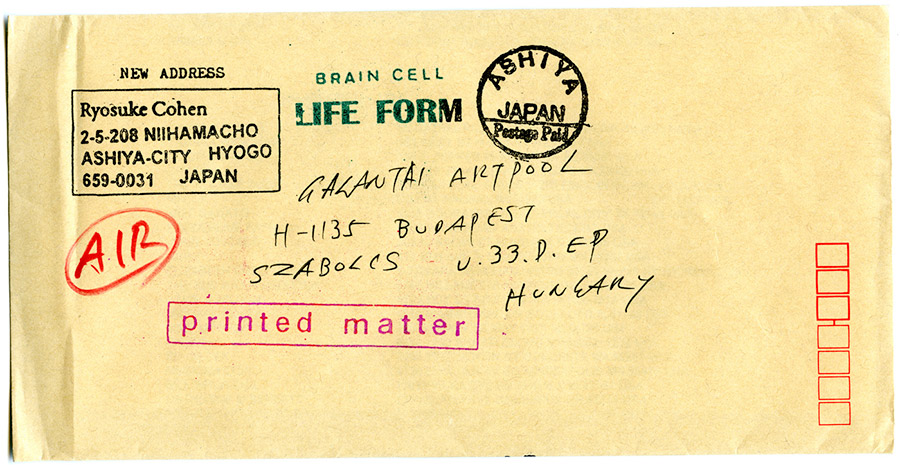 NEW ADDRESS
Ryosuke Cohen
2-5-208 NIIHAMACHO
ASHIYA-CITY HYOGO
659-0031 JAPAN
BRAIN CELL
LIFE FORM
ASHIYA
JAPAN
Postage Paid
GALANTAI ARTPOOL
H-1135 BUDAPEST
SZABOLCS U.33.D.EP
HUNGARY
AIR
printed matter